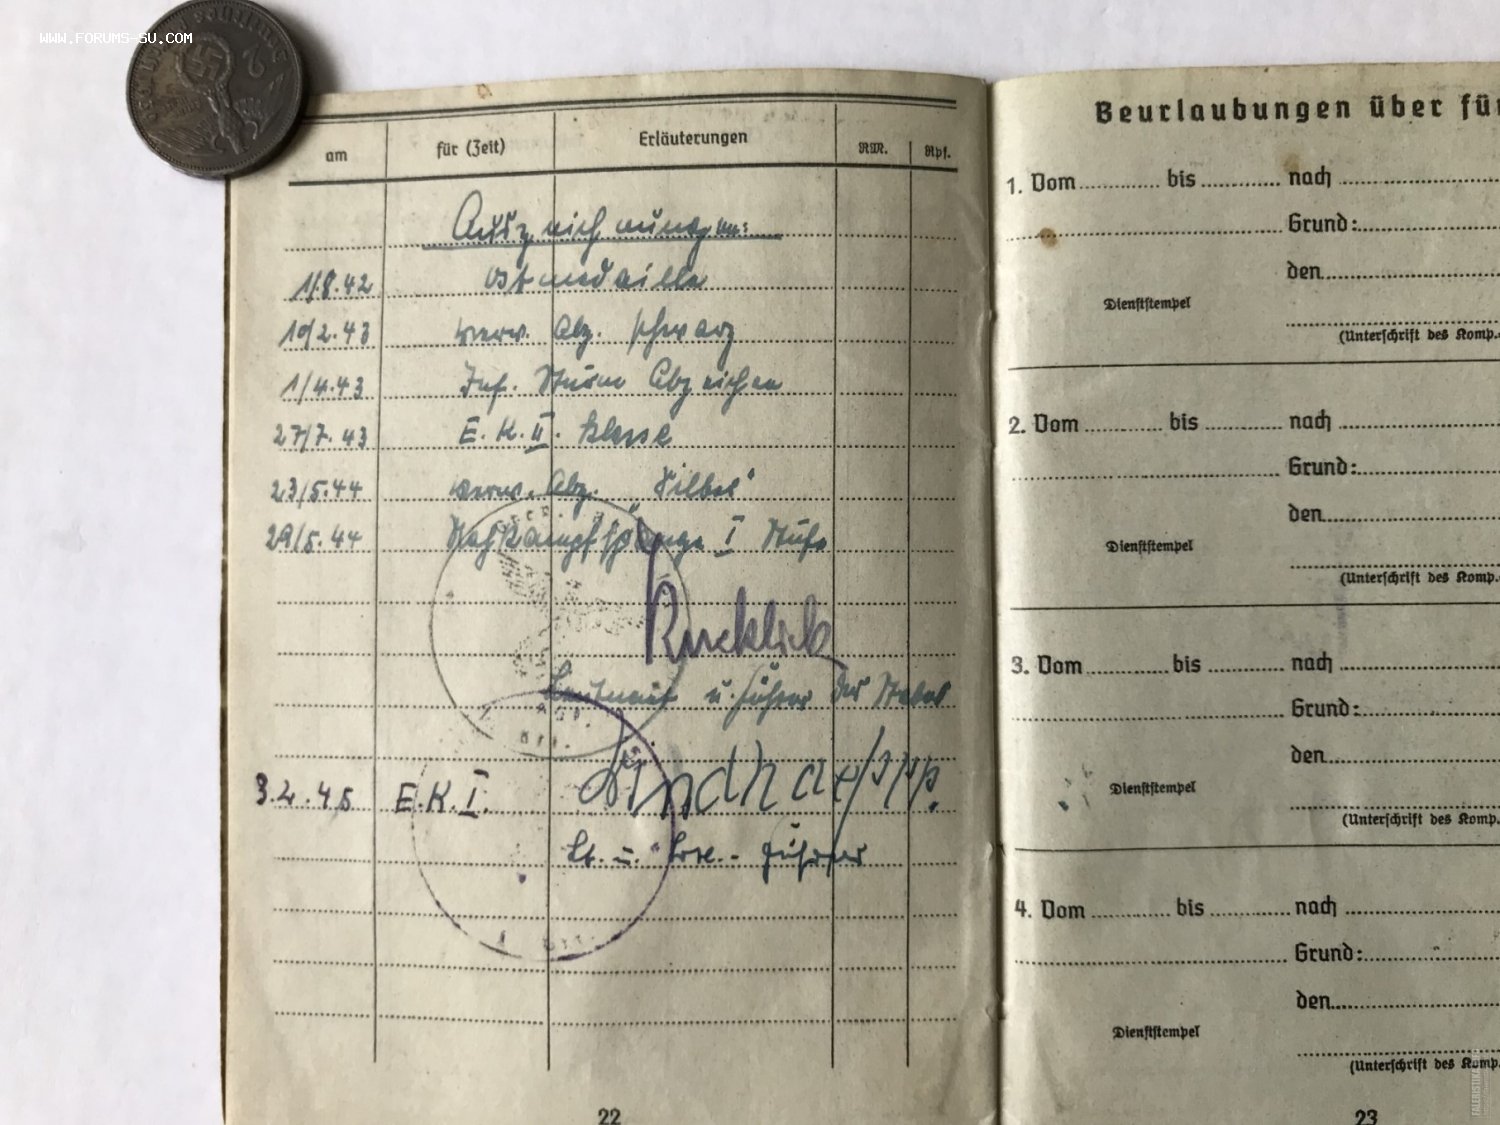 WWW.FORUMS-SU.COM
am für (Zeit) Erläuterungen RM. Rpf.
Auszeichnungen:
1/8.42 Ostmedaille
10/2.43 Verw. Abz. schwarz
1/4.43 Inf. Sturm Abzeichen
27/7.43 E.K.II. Klasse
23/5.44 Verw. Abz. „Silber"
29/5.44 Nahkampfspange I Stufe
Leutnant u. Führer der
3.2.45 E.K.I.
Lt. u. Führer
22
Beurlaubungen über fü
1. Vom bis nach
Grund:
den
Dienststempel
(Unterschrift des Komp.
2. Vom bis nach
Grund:
den
Dienststempel
(Unterschrift des Komp.
3. Vom bis nach
Grund:
den
Dienststempel
(Unterschrift des Komp.
4. Vom bis nach
Grund:
den
Dienststempel
(Unterschrift des Komp.
23